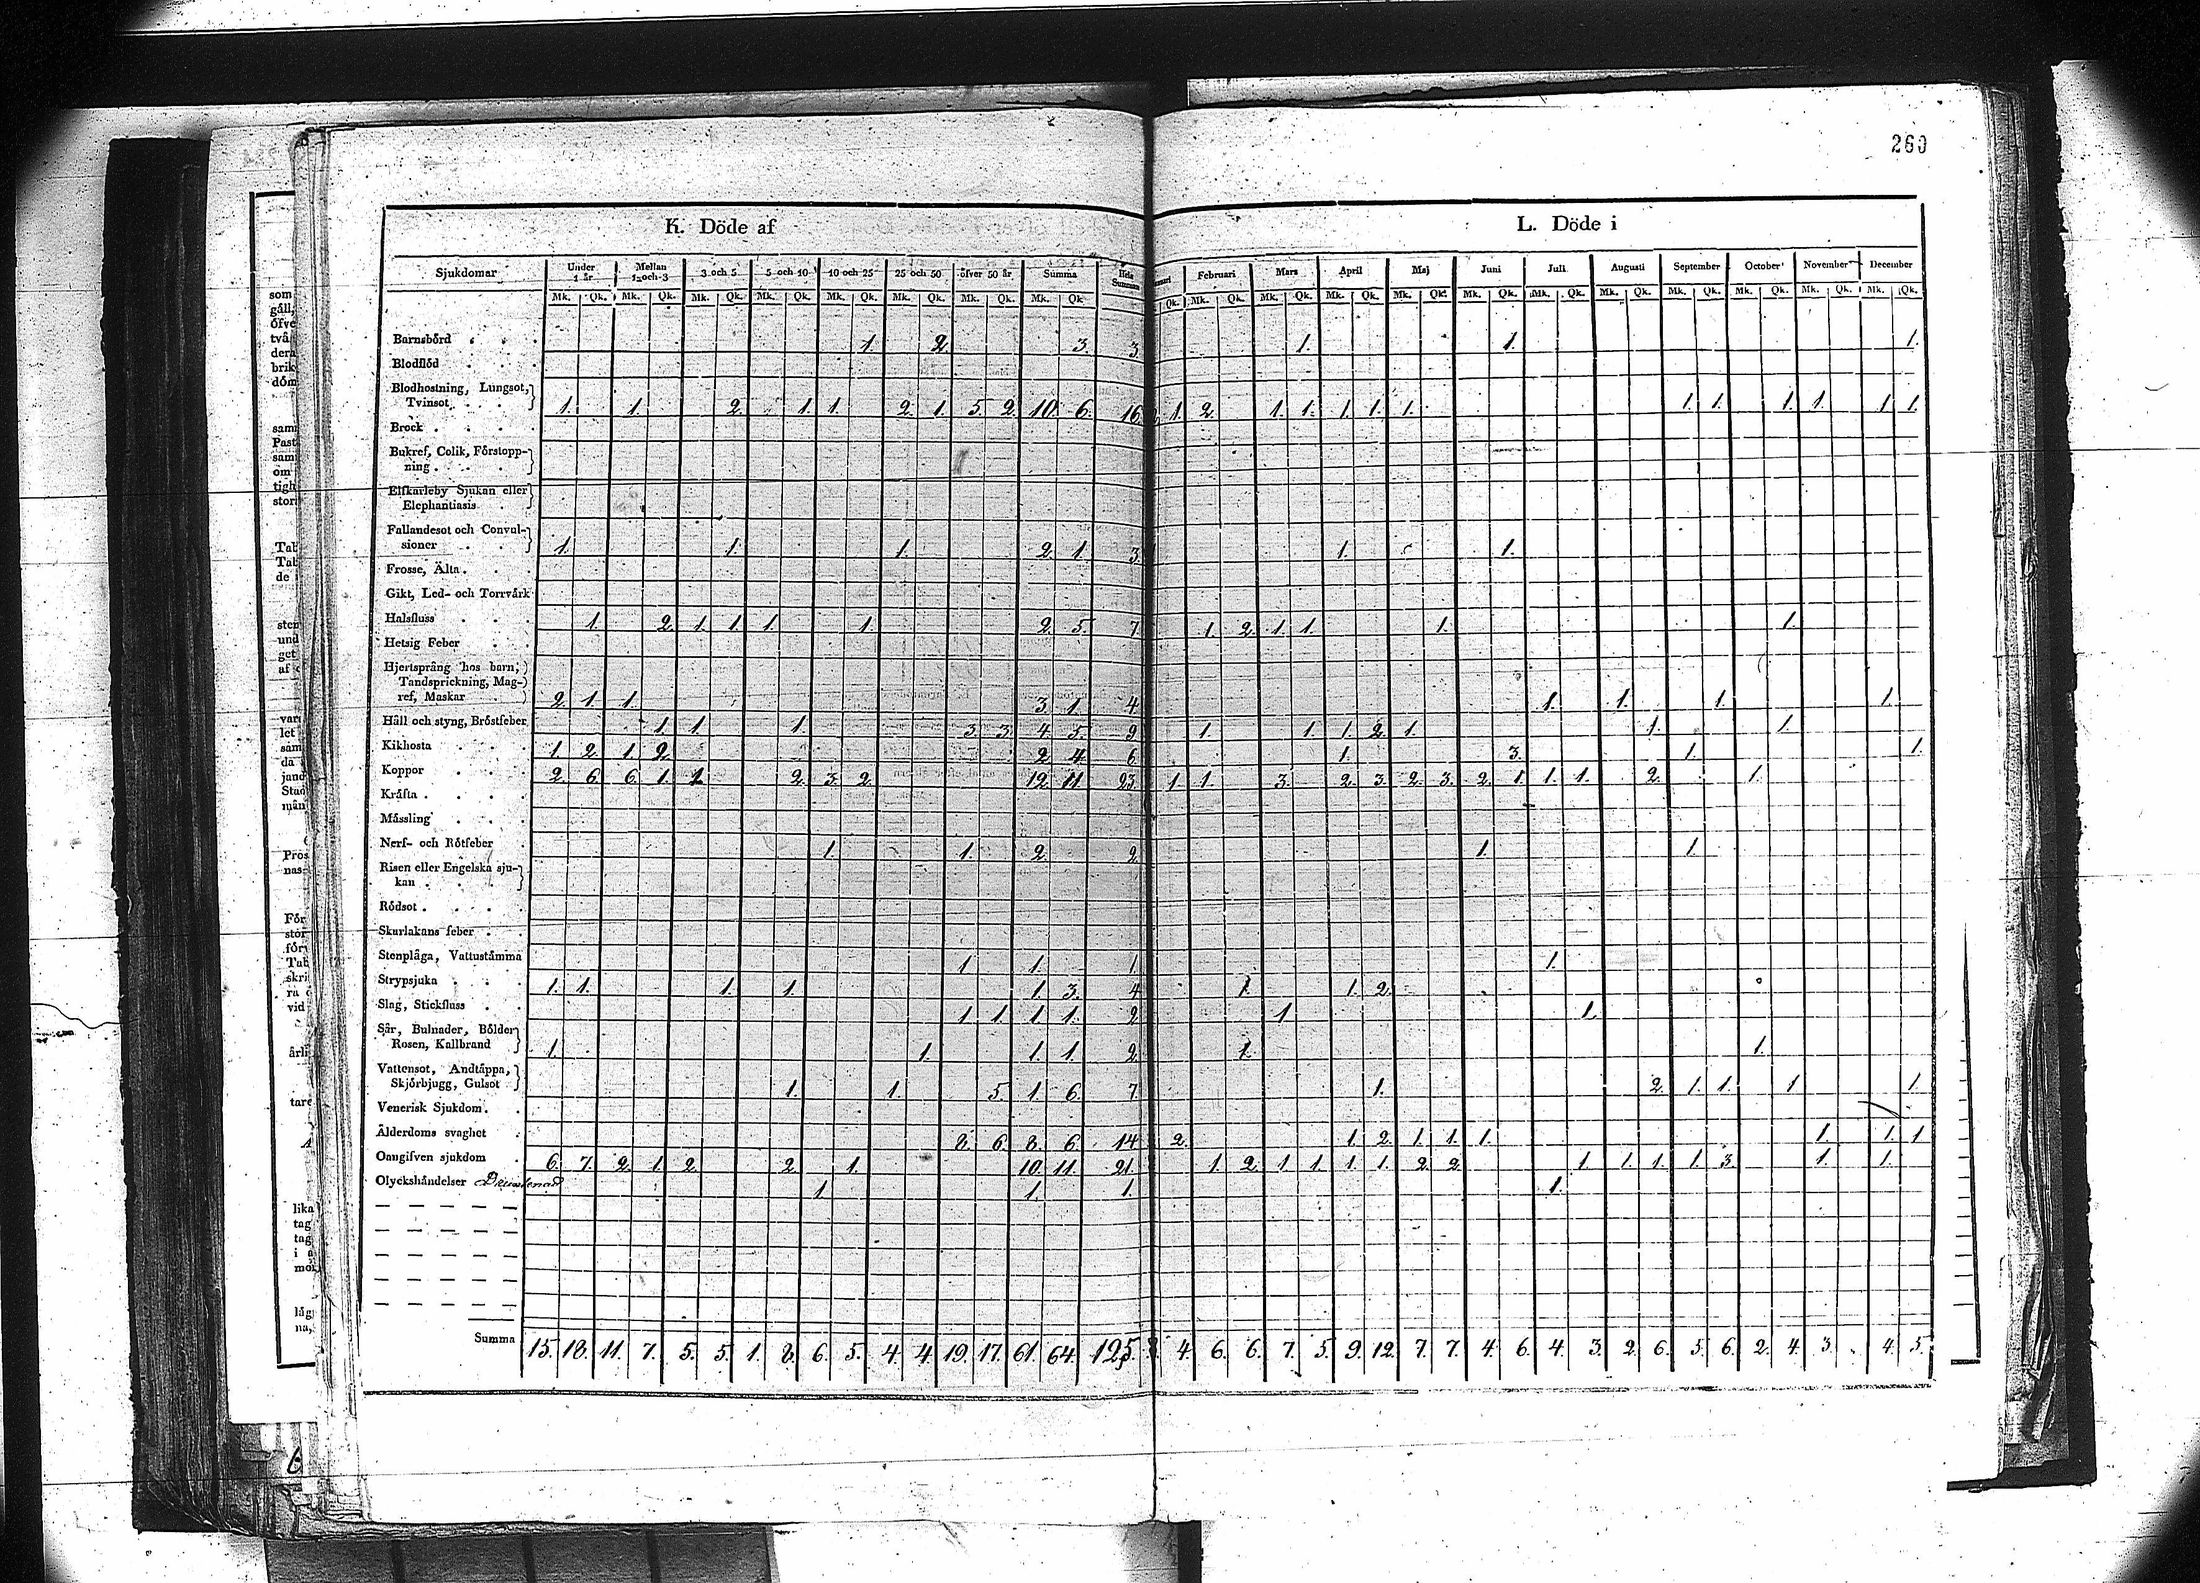 260
K. Döde af
L. Döde i
Sjukdomar Under 1 år Mellan 1 och 3 3 och 5 5 och 10 10 och 25 25 och 50 öfver 50 år Summa Hela Summan Februari Mars April Maj Juni Juli Augusti September October November December
Mk. Qk. Mk. Qk. Mk. Qk. Mk. Qk. Mk. Qk. Mk. Qk. Mk. Qk. Mk. Qk. Qk. Mk. Qk. Mk. Qk. Mk. Qk. Mk. Qk. Mk. Qk. Mk. Qk. Mk. Qk. Mk. Qk. Mk. Qk. Mk. Qk. Mk. Qk.
Barnsbörd 1. 2. 3. 3. 1. 1. 1.
Blodflöd
Blodhostning, Lungsot,
Tvinsot 1. 1. 2. 1. 1. 2. 1. 5. 2. 10. 6. 16. 1. 2. 1. 1. 1. 1. 1. 1. 1. 1. 1. 1. 1.
Brock
Bukref, Colik, Förstopp-
ning
Elfkarleby Sjukan eller
Elephantiasis
Fallandesot och Convul-
sioner 1. 1. 1. 2. 1. 3. 1. 1.
Frosse, Älta
Gikt, Led- och Torrvärk
Halsfluss 1. 2. 1. 1. 1. 1. 2. 5. 7. 1. 2. 1. 1. 1. 1.
Hetsig Feber
Hjertsprång hos barn,
Tandsprickning, Mag-
ref, Maskar 2. 1. 1. 3. 1. 4. 1. 1. 1. 1.
Håll och styng, Bröstfeber 1. 1. 1. 3. 3. 4. 5. 9. 1. 1. 1. 2. 1. 1. 1.
Kikhosta 1. 2. 1. 2. 2. 4. 6. 1. 3. 1. 1.
Koppor 2. 6. 6. 1. 1. 2. 3. 2. 12. 11. 23. 1. 1. 3. 2. 3. 2. 3. 2. 1. 1. 1. 2. 1.
Kräfta
Mässling
Nerf- och Rötfeber 1. 1. 2. 2. 1. 1.
Risen eller Engelska sju-
kan
Rödsot
Skarlakans feber
Stenplåga, Vattustämma 1. 1. 1. 1.
Strypsjuka 1. 1. 1. 1. 1. 3. 4. 1. 1. 2.
Slag, Stickfluss 1. 1. 1. 1. 2. 1. 1.
Sår, Bulnader, Bölder
Rosen, Kallbrand 1. 1. 1. 1. 2. 1. 1.
Vattensot, Andtäppa,
Skjörbjugg, Gulsot 1. 1. 5. 1. 6. 7. 1. 2. 1. 1. 1. 1.
Venerisk Sjukdom
Ålderdoms svaghet 8. 6. 8. 6. 14. 2. 1. 2. 1. 1. 1. 1. 1. 1.
Oangifven sjukdom 6. 7. 2. 1. 2. 2. 1. 10. 11. 21. 1. 2. 1. 1. 1. 1. 2. 2. 1. 1. 1. 1. 3. 1. 1.
Olyckshändelser 1. 1. 1. 1.
Summa 15. 18. 11. 7. 5. 5. 1. 8. 6. 5. 4. 4. 19. 17. 61. 64. 125. 8. 4. 6. 6. 7. 5. 9. 12. 7. 7. 4. 6. 4. 3. 2. 6. 5. 6. 2. 4. 3. 4. 5.